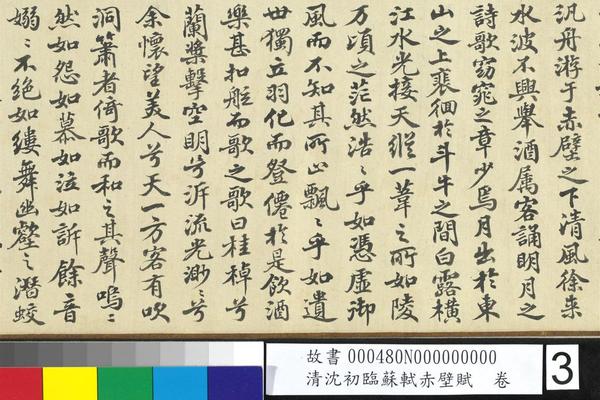 汎舟游于赤壁之下清風徐来
水波不興舉酒属客誦明月之
詩歌窈窕之章少焉月出於東
山之上裴徊於斗牛之間白露横
江水光接天縱一葦之所如陵
万頃之茫然浩〻乎如憑虚御
風而不知其所止飄〻乎如遺
世獨立羽化而登僊於是飲酒
樂甚扣舷而歌之歌曰桂棹兮
蘭槳擊空明兮泝流光渺〻兮
余懷望美人兮天一方客有吹
洞簫者倚歌而和之其聲嗚〻
然如怨如慕如泣如訴餘音
嫋〻不絶如縷舞幽壑之潛蛟
故書 000480N000000000
清沈初臨蘇軾赤壁賦 卷
3